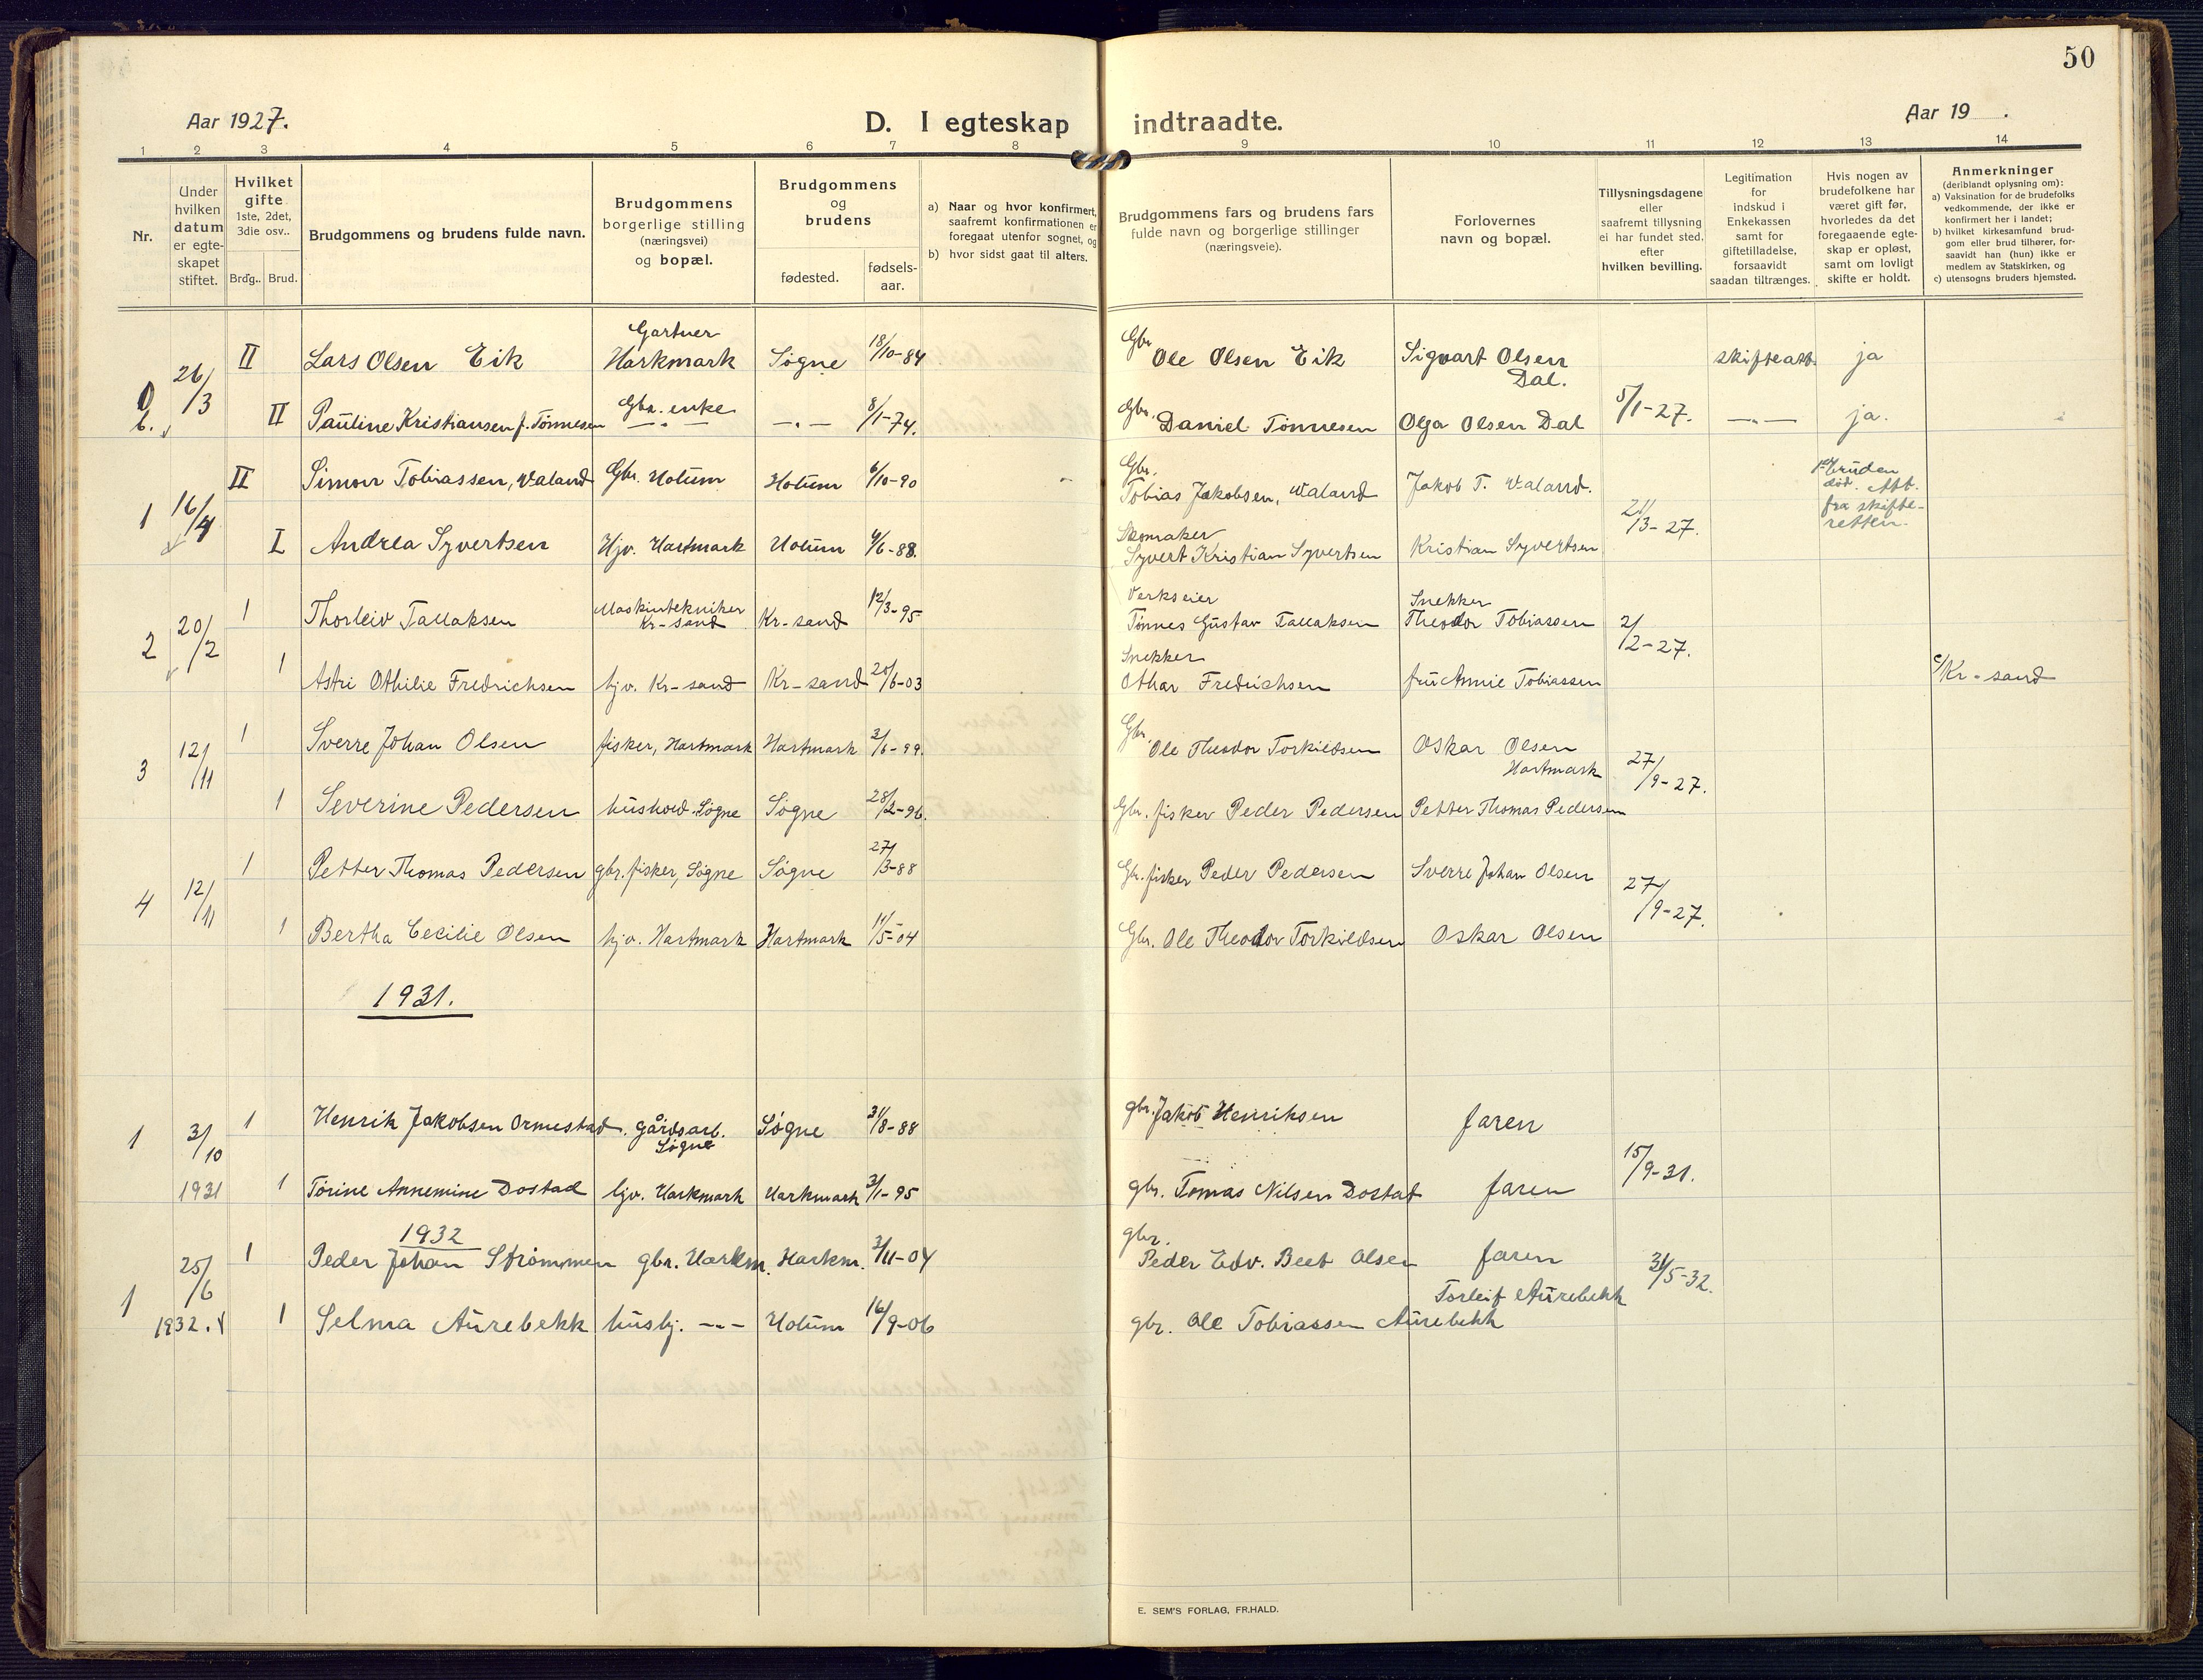 50
Aar 1927.
D. I egteskap indtraadte.
Aar 19 .
1 2 3 4 5 6 7 8 9 10 11 12 13 14
Nr.
Under
hvilken
datum
er egte-
skapet
stiftet.
Hvilket
gifte
1ste, 2det,
3die osv..
Brdg.. Brud.
Brudgommens og brudens fulde navn.
Brudgommens
borgerlige stilling
(næringsvei)
og bopæl.
Brudgommens
og
brudens
fødested.
fødsels-
aar.
a) Naar og hvor konfirmert,
saafremt konfirmationen er
foregaat utenfor sognet, og
b) hvor sidst gaat til alters.
Brudgommens fars og brudens fars
fulde navn og borgerlige stillinger
(næringsveie).
Forlovernes
navn og bopæl.
Tillysningsdagene
eller
saafremt tillysning
ei har fundet sted,
efter
hvilken bevilling.
Legitimation
for
indskud i
Enkekassen
samt for
giftetilladelse,
forsaavidt
saadan tiltrænges.
Hvis nogen av
brudefolkene har
været gift før,
hvorledes da det
foregaaende egte-
skap er opløst,
samt om lovligt
skifte er holdt.
Anmerkninger
(deriblandt oplysning om):
a) Vaksination for de brudefolks
vedkommende, der ikke er
konfirmert her i landet;
b) hvilket kirkesamfund brud-
gom eller brud tilhører, for-
saavidt han (hun) ikke er
medlem av Statskirken, og
c) utensogns bruders hjemsted.
26/3 II Lars Olsen Eik Gartner Harkmark Søgne 18/10-84 Gbr Ole Olsen Eik Sigvart Olsen Dal. skifteatt. ja
II Pauline Kristiansen f. Tønnesen Gbr. enke —"— —"— 8/1-74. Gbr. Daniel Tønnesen Olga Olsen Dal 5/1-27. —"— ja.
1 16/4 II Simon Tobiassen, Valand Gbr. Holum Holum 6/10-90 Gbr. Tobias Jakobsen, Valand Jakob T. Valand. 21/3-27. bruden død. Att. fra skifte-retten.
I Andrea Syvertsen Hjv. Hartmark Holum 4/6-88. Skomaker Syvert Kristian Syvertsen Kristian Syvertsen
2 20/2 1 Thorleiv Tallaksen Maskintekniker Kr-sand Kr-sand 12/3-95 Verkseier Tønnes Gustav Tallaksen Snekker Theodor Tobiassen 2/2-27.
1 Astri Othilie Fredrichsen hjv. Kr-sand Kr-sand 20/6-03 Snekker Othar Fredrichsen fru Annie Tobiassen c/ Kr-sand
3 12/11 1 Sverre Johan Olsen fisker, Hartmark Hartmark 2/6-99. Gbr. Ole Theodor Torkildsen Oskar Olsen Hartmark 27/9-27.
1 Severine Pedersen hushold. Søgne Søgne 28/2-96. Gbr. fisker Peder Pedersen Petter Thomas Pedersen
4 12/11 1 Petter Thomas Pedersen gbr. fisker, Søgne Søgne 27/3-88 Gbr. fisker Peder Pedersen Sverre Johan Olsen 27/9-27.
1 Bertha Cecilie Olsen hjv. Hartmark Hartmark 11/5-04 Gbr. Ole Theodor Torkildsen Oskar Olsen
1931.
1 3/10 1931 1 Henrik Jakobsen Ormestad. gårdsarb. Søgne Søgne 31/8-88 gbr. Jakob Henriksen faren 15/9-31.
1 Torine Annemine Dostad hjv. Harkmark Harkmark 3/1-95 gbr. Tomas Nilsen Dostad faren
1932
1 25/6 1932. 1 Peder Johan Strømmen gbr. Harkm. Harkm. 3/11-04 gbr. Peder Edv. Beet Olsen faren 31/5-32.
1 Selma Aurebekk hushj. —"— Holum 16/9-06 gbr. Ole Tobiassen Aurebekk Torleif Aurebekk
E. SEM'S FORLAG, FR.HALD.